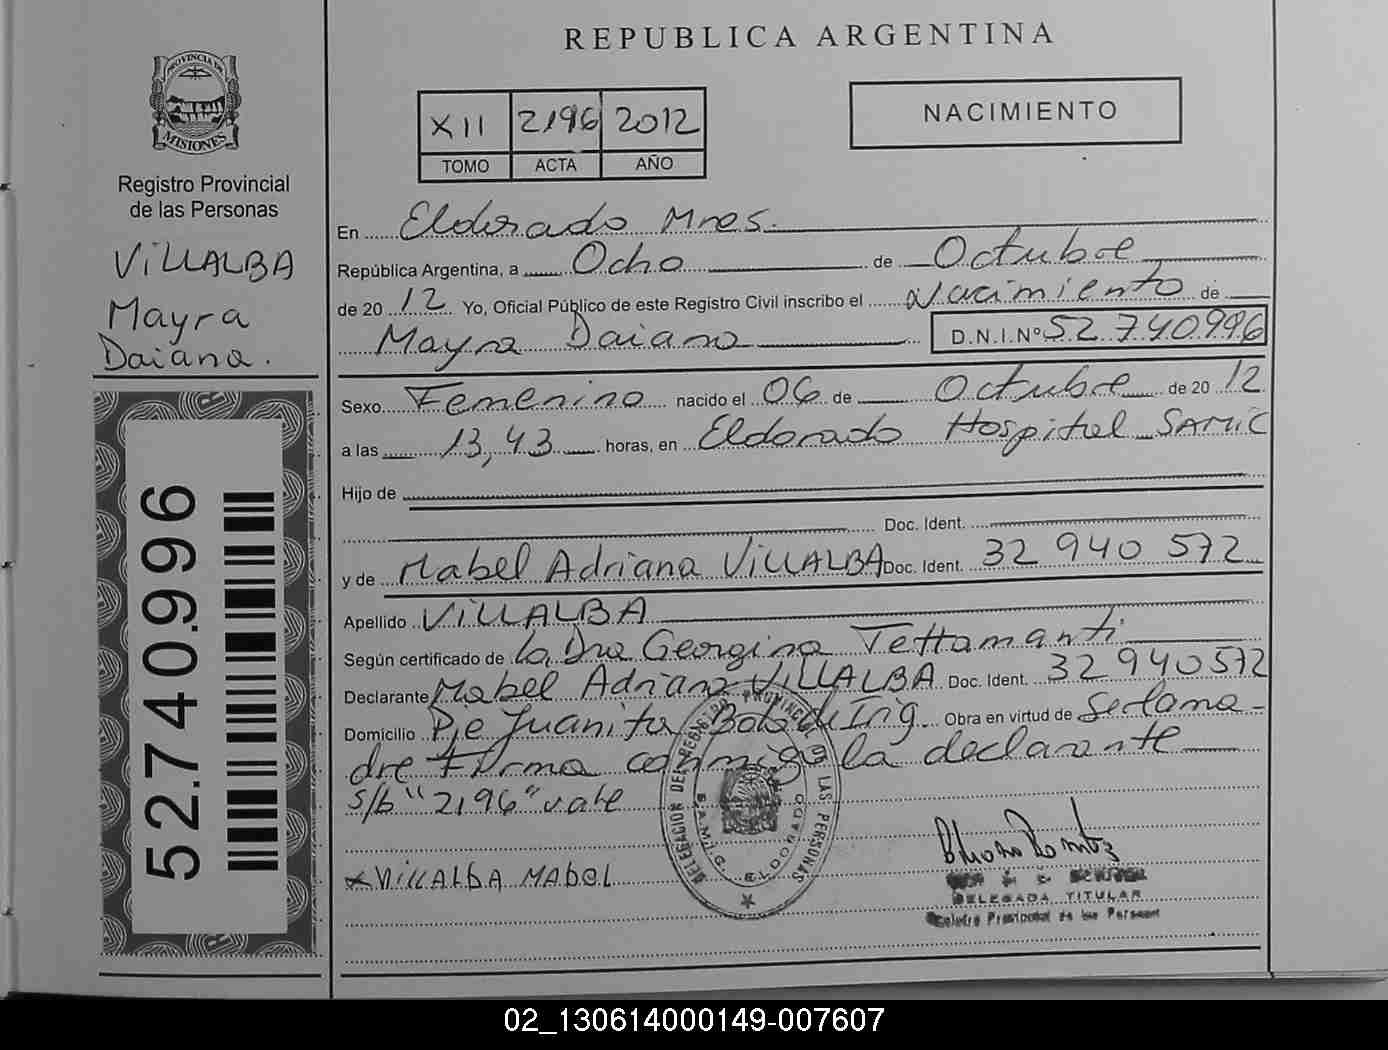 REPUBLICA ARGENTINA
PROVINCIA DE
MISIONES
Registro Provincial
de las Personas
VILLALBA
Mayra
Daiana.
52.740.996
XII 2196 2012
TOMO ACTA AÑO
NACIMIENTO
En Eldorado Mnes.
República Argentina, a Ocho de Octubre
de 20 12 Yo, Oficial Público de este Registro Civil inscribo el Nacimiento de
Mayra Daiana D.N.I.Nº 52.740.996
Sexo Femenino nacido el 06 de Octubre de 20 12
a las 13,43 horas, en Eldorado Hospital SAMIC
Hijo de
Doc. Ident.
y de Mabel Adriana VILLALBA Doc. Ident. 32 940 572
Apellido VILLALBA
Según certificado de la Dra Georgina Tettamanti
Declarante Mabel Adriana VILLALBA Doc. Ident. 32 940 572
Domicilio Pje Juanita Obra en virtud de Ser la ma-
dre Firma conmigo la declarante
s/b "2196" vale
x VILLALBA MABEL
DELEGACION DEL REGISTRO PROVINCIAL DE LAS PERSONAS
S.A.M.I.C. ELDORADO
DELEGADA TITULAR
Registro Provincial de las Personas
02_130614000149-007607